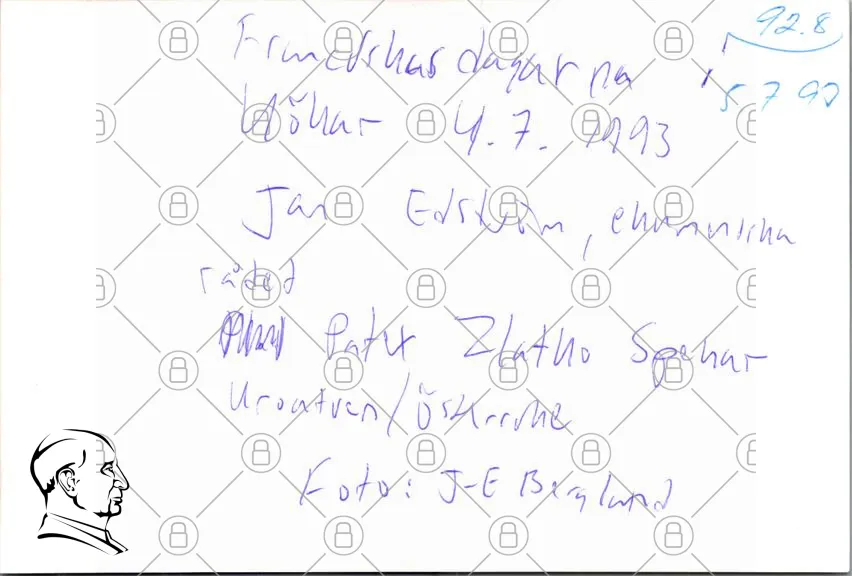 92.8
5 7 93
Franciskus dagar på
Kökar 4.7. 1993
Jan Edström, ekumeniska
rådet
Pater Zlatko Spehar
Kroatien/Österrike
Foto: J-E Berglund